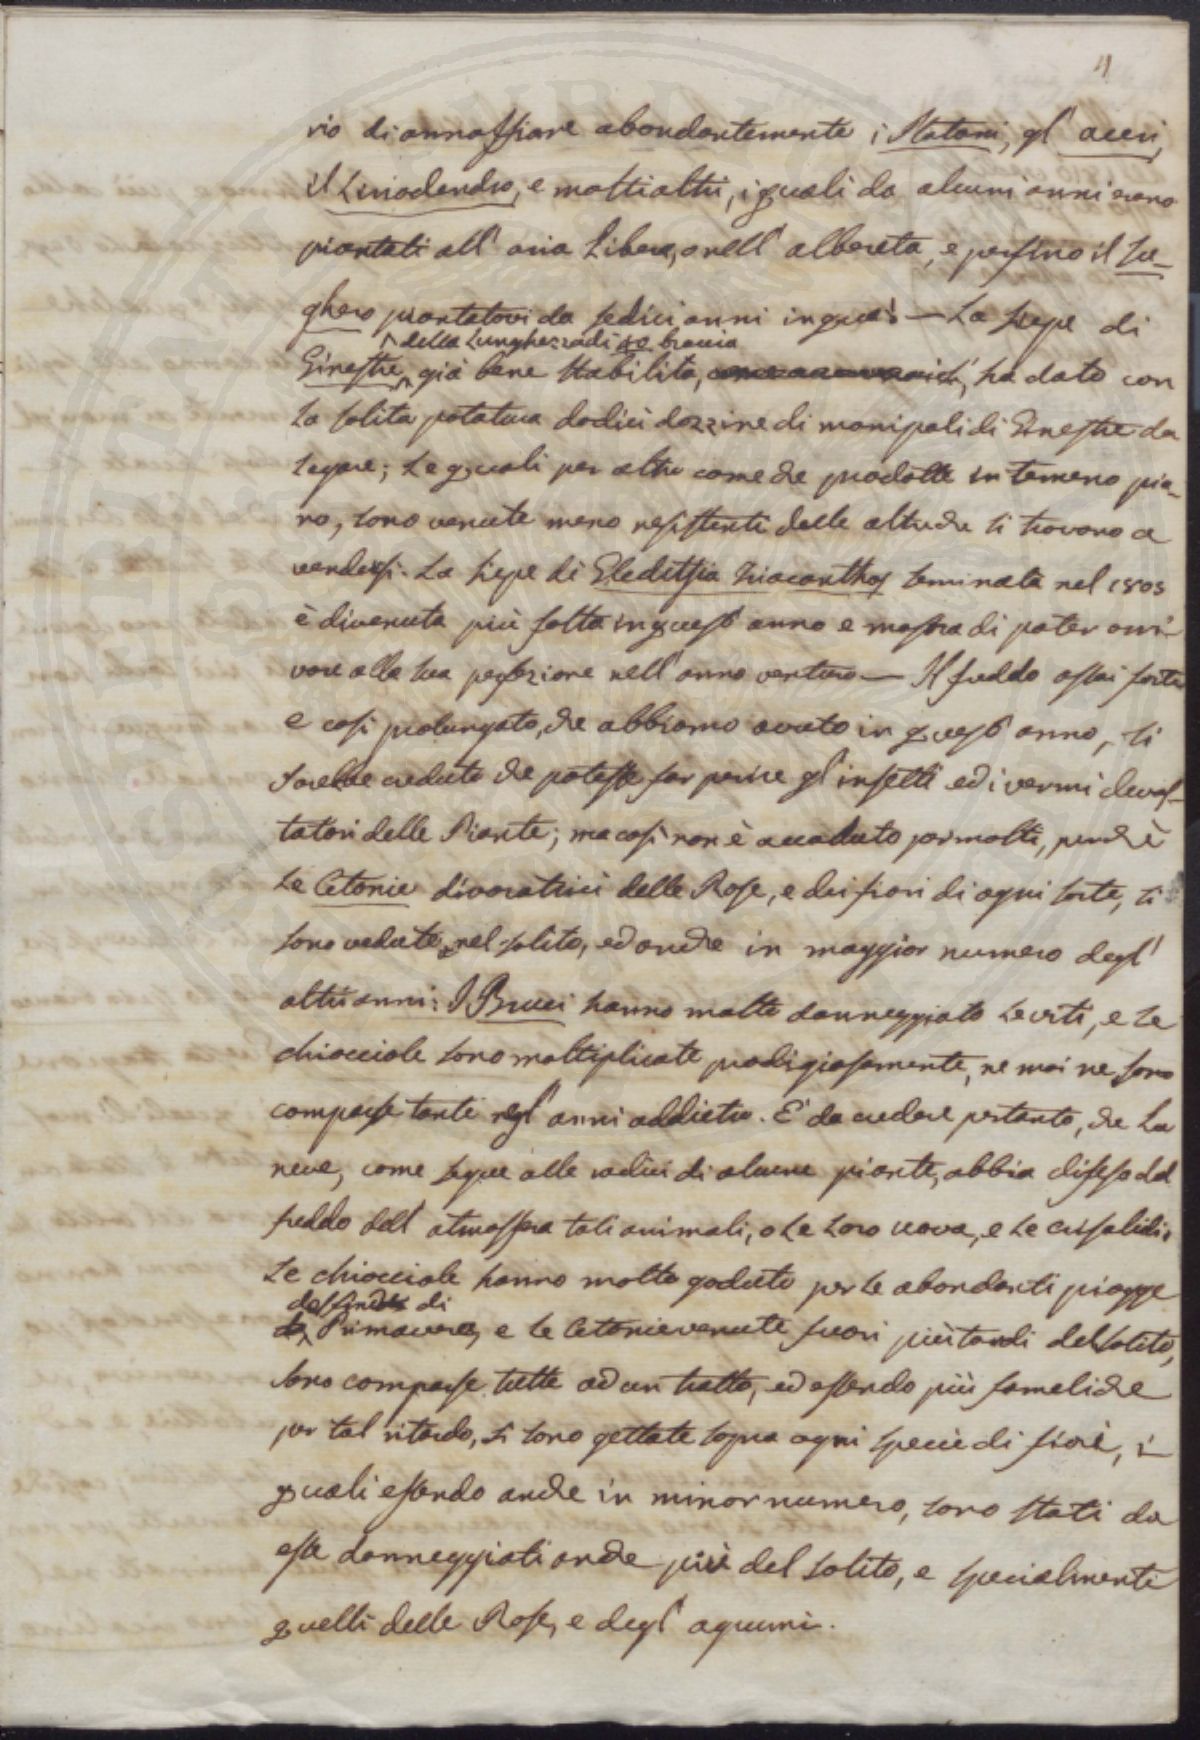 11
rio di annaffiare abondantemente i Platani, gl' aceri,
il Liriodendro, e molti altri, i quali da alcuni anni erano
piantati all' aria libera, o nell' albereta, e persino il Su-
ghero piantatovi da sedici anni in qua! — La siepe di
della lunghezza di 40 braccia
Ginestre, già bene stabilita, ha dato con
la solita potatura dodici dozzine di manipoli di Ginestre da
legare; le quali per altro come che prodotte in terreno pia-
no, sono venute meno resistenti delle altre che si trovano a
vendersi. La siepe di Gleditsia Triacanthos seminata nel 1803
è divenuta più folta in quest' anno e mostra di poter arri-
vare alla sua perfezione nell' anno venturo — Il freddo assai forte
e così prolungato, che abbiamo avuto in quest' anno, si
sarebbe creduto che potesse far perire gl' insetti ed i vermi devas-
tatori delle Piante; ma così non è accaduto per molti, perchè
le Cetonie divoratrici delle Rose, e dei fiori di ogni sorte, si
sono vedute nel solito, ed anche in maggior numero degl'
altri anni: I Bruci hanno molto danneggiato le viti, e le
chiocciole sono moltiplicate prodigiosamente, ne mai ne sono
comparse tante negl' anni addietro. E' da credere pertanto, che la
neve, come segue alle radici di alcune piante, abbia difeso dal
freddo dell' atmosfera tali animali, o le loro uova, e le crisalidi.
Le chiocciole hanno molto goduto per le abondanti piogge
di
Primavera, e le Cetonie venute fuori più tardi del solito,
sono comparse tutte ad un tratto, ed essendo più fameliche
per tal ritardo, si sono gettate sopra ogni specie di fiori, i
quali essendo anche in minor numero, sono stati da
esse danneggiati anche più del solito, e specialmente
quelli delle Rose, e degl' agrumi.